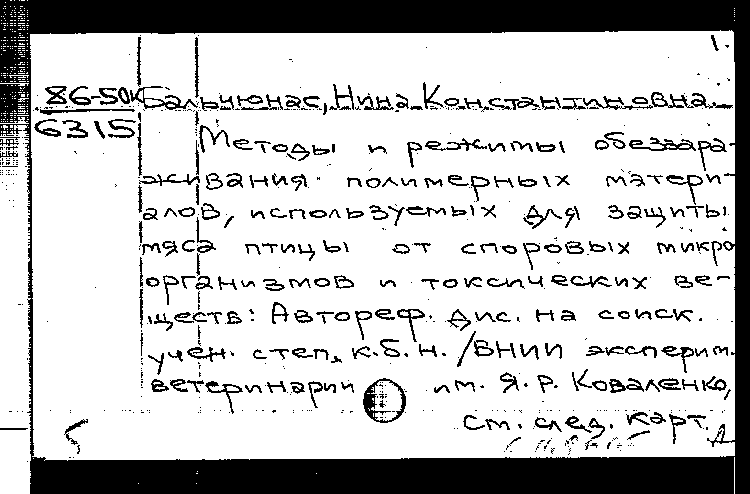 1.
86-50к Бальчюнас, Нина Константиновна
6315
Методы и режимы обеззара-
живания полимерных матери-
алов, используемых для защиты
мяса птицы от споровых микро
организмов и токсических ве-
ществ: Автореф. дис. на соиск.
учен. степ. к.б.н. /ВНИИ эксперим.
ветеринарии им. Я. Р. Коваленко,
см. след. карт.
5